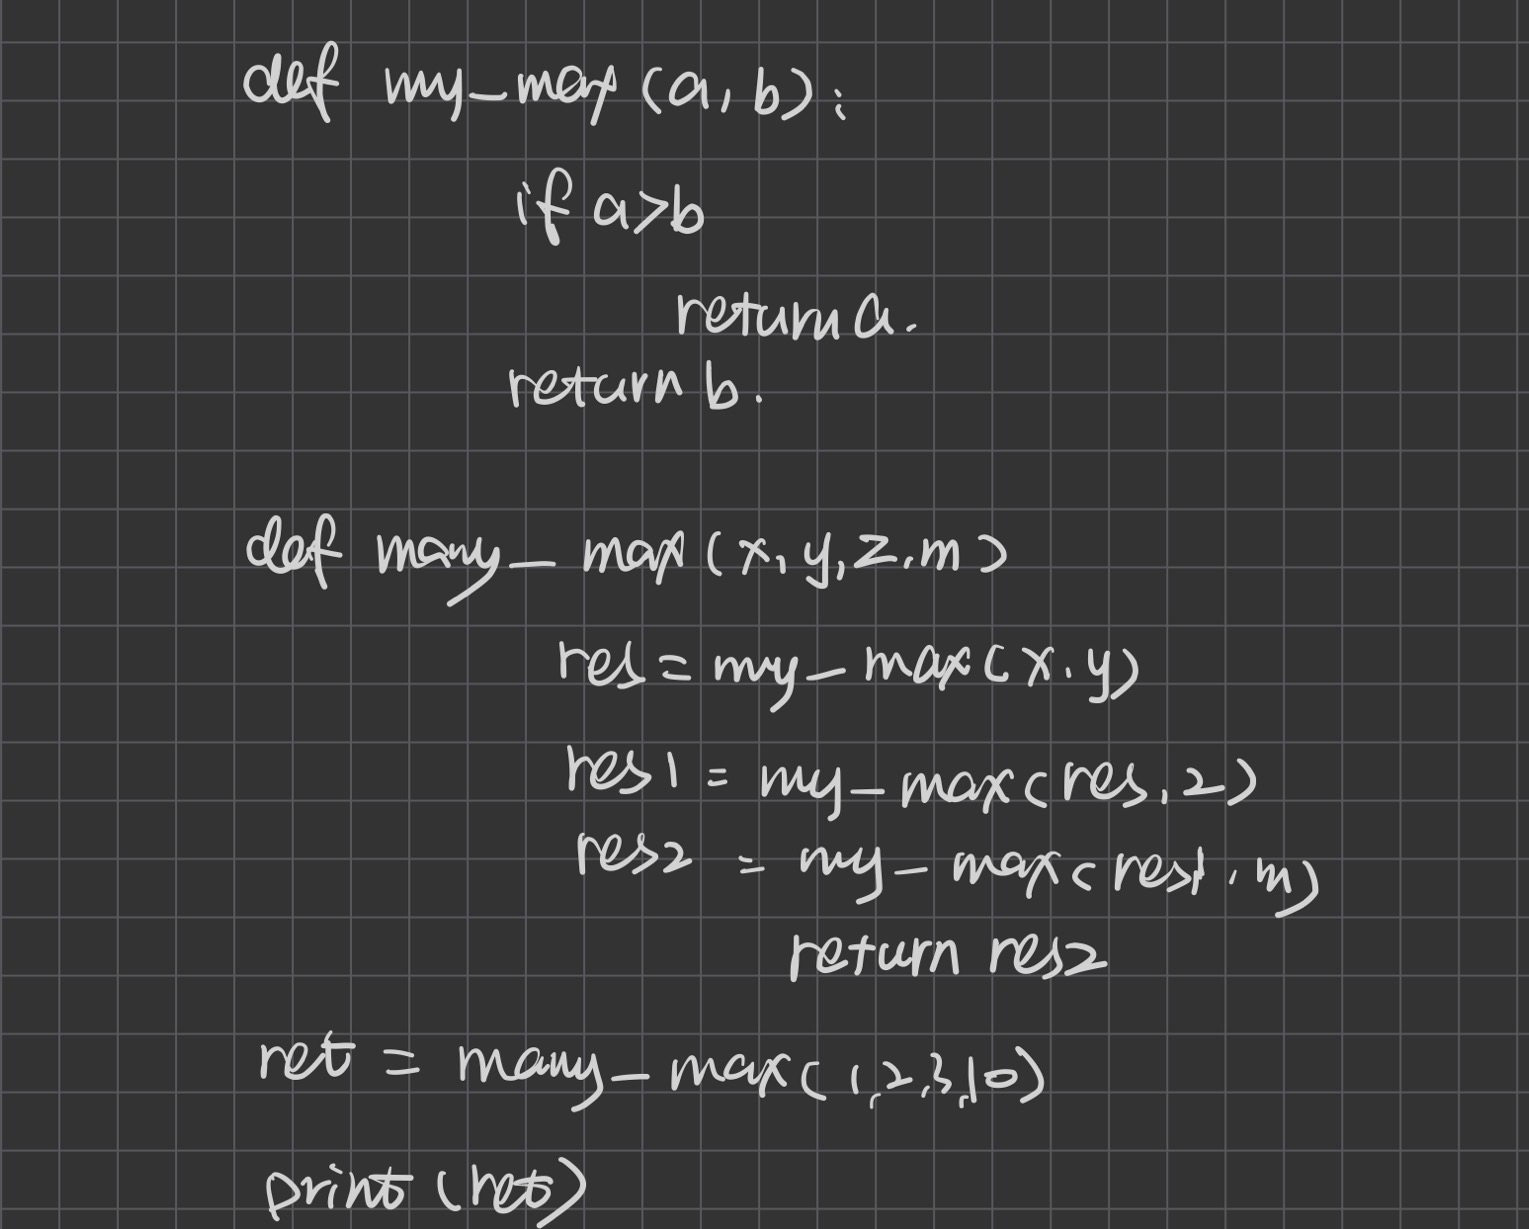 def my_max(a, b):
if a>b
return a.
return b.
def many_max(x, y, z, m)
res = my_max(x, y)
res1 = my_max(res, 2)
res2 = my_max(res1, m)
return res2
ret = many_max(1,2,3,10)
print(ret)